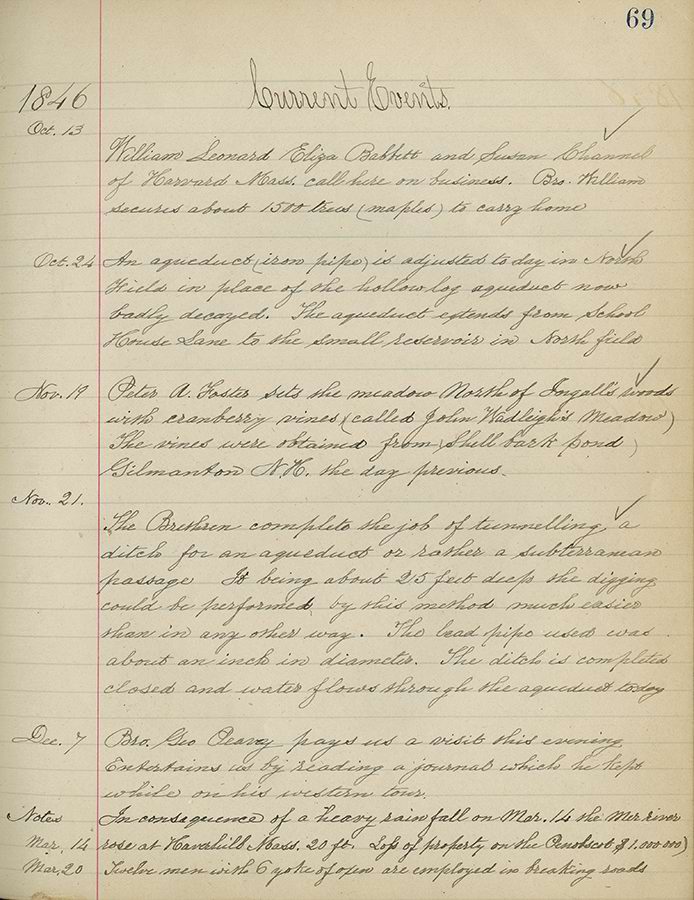 69
Current Events.
1846
Oct. 13
William Leonard Eliza Babbitt and Susan Channel
of Harvard Mass. call here on business. Bro. William
secures about 1500 trees (maples) to carry home
Oct. 24 An aqueduct (iron pipe) is adjusted to day in North
Field in place of the hollow log aqueduct now
badly decayed. The aqueduct extends from School
House Lane to the small reservoir in North field
Nov. 19 Peter A. Foster sets the meadow North of Ingall's woods
with cranberry vines (called John Wadleigh's Meadow)
The vines were obtained from (Shell bark pond)
Gilmanton N.H. the day previous.
Nov. 21.
The Brethren complete the job of tunnelling a
ditch for an aqueduct or rather a subterranean
passage It being about 25 feet deep the digging
could be performed by this method much easier
than in any other way. The lead pipe used was
about an inch in diameter. The ditch is completed
closed and water flows through the aqueduct today
Dec. 7 Bro. Geo Peavey pays us a visit this evening
Entertains us by reading a journal which he kept
while on his western tour.
Notes In consequence of a heavy rain fall on Mar. 14 the Mer river
Mar. 14 rose at Haverhill Mass. 20 ft. Loss of property on the Penobscot $1.000 000)
Mar. 20 Twelve men with 6 yoke of oxen are employed in breaking roads